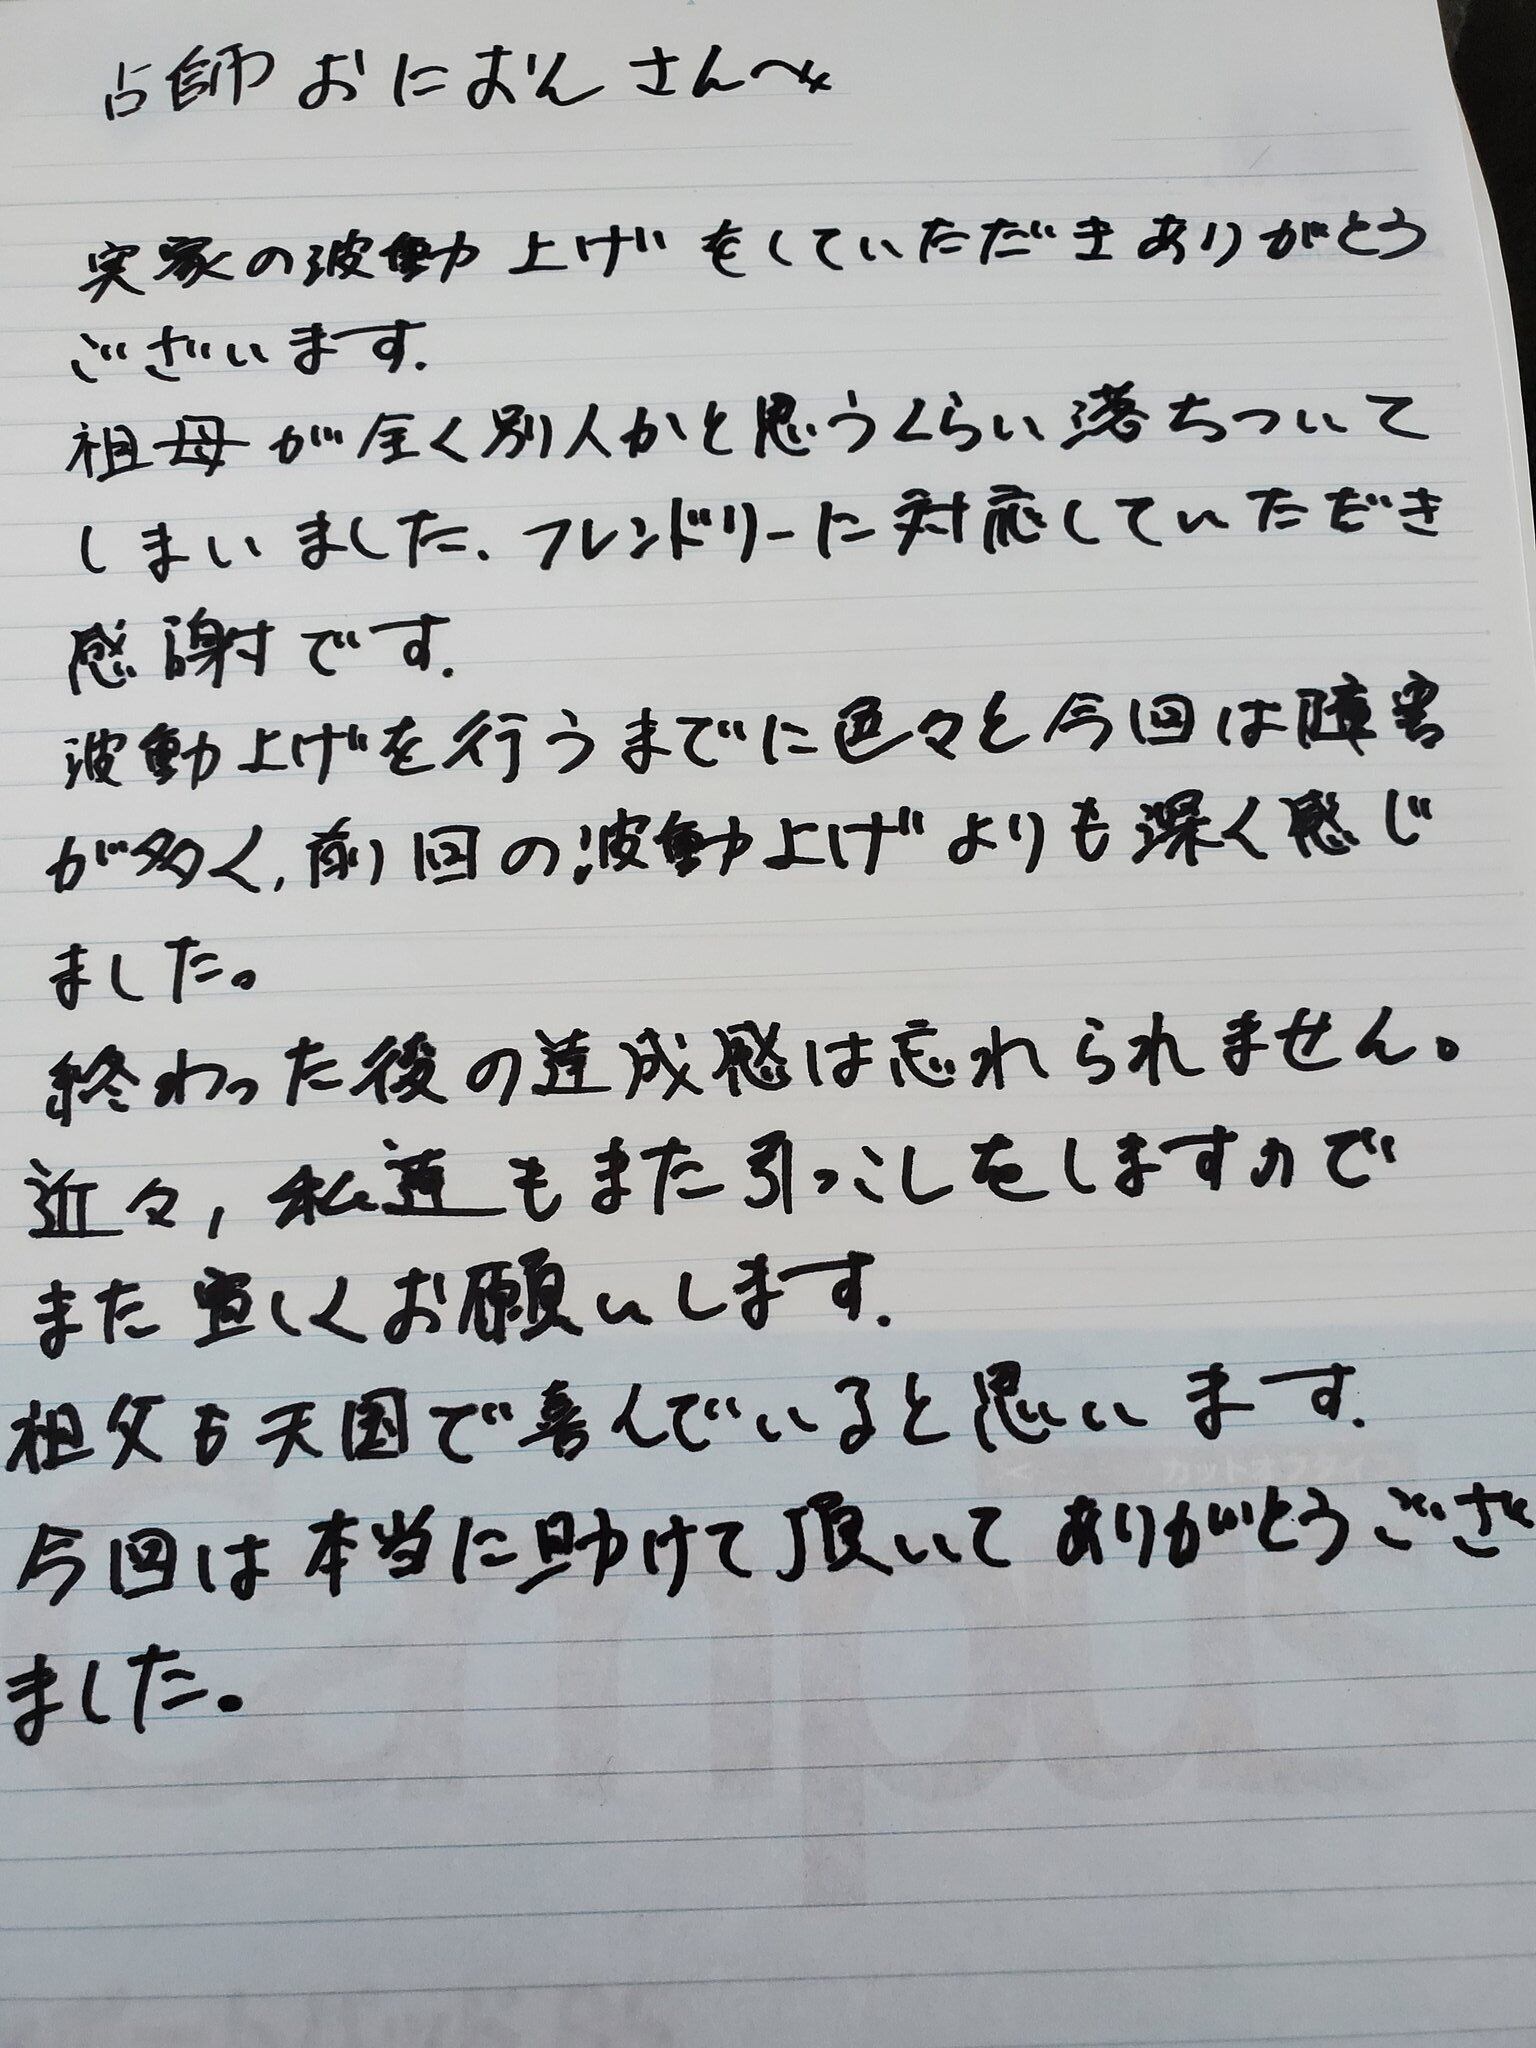 占師 おにおん さんへ
実家の波動上げをしていただきありがとう
ございます.
祖母が全く別人かと思うくらい落ちついて
しまいました、フレンドリーに対応していただき
感謝です.
波動上げを行うまでに色々と今回は障害
が多く,前回の波動上げよりも深く感じ
ました。
終わった後の達成感は忘れられません。
近々,私達もまた引っこしをしますので
また宜しくお願いします.
祖父も天国で喜んでいると思います.
今回は本当に助けて頂いてありがとうござ
ました。
カットオフタイプ
Campus